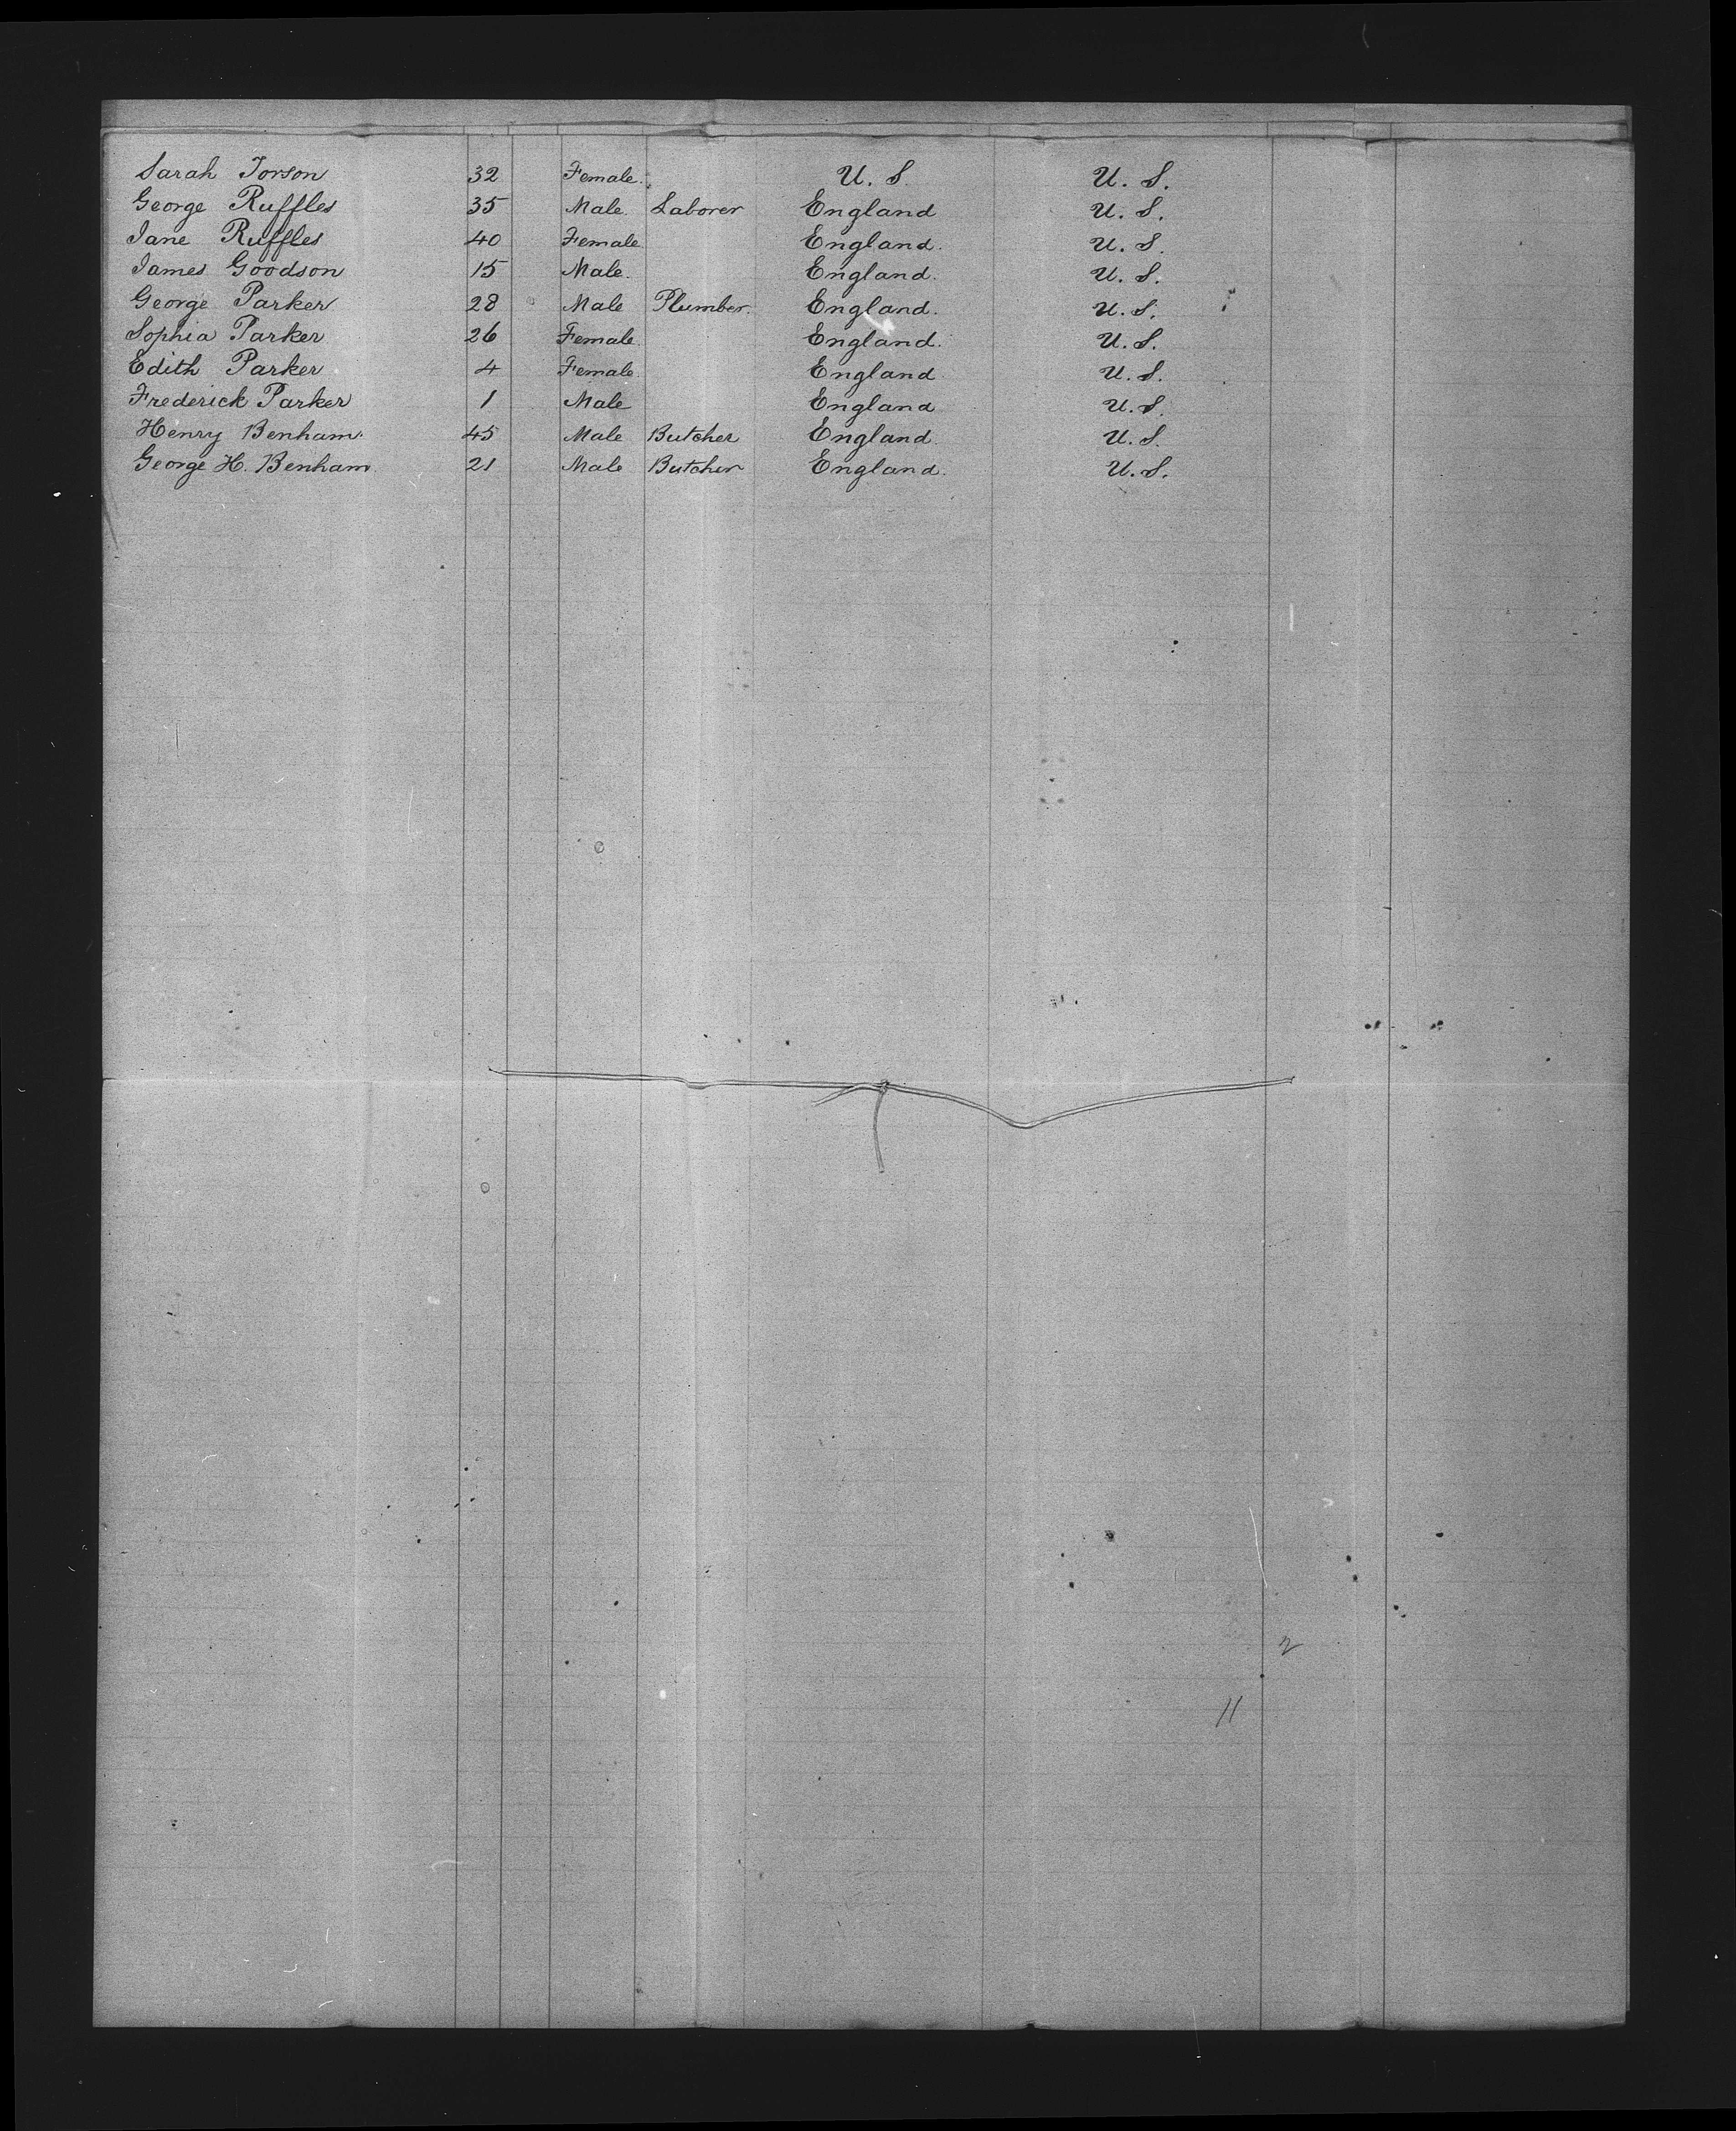 Sarah Torson 32 Female. U. S. U. S.
George Ruffles 35 Male. Laborer England U. S.
Jane Ruffles 40 Female England. U. S.
James Goodson 15 Male. England. U. S.
George Parker 28 Male Plumber. England. U. S.
Sophia Parker 26 Female England. U. S.
Edith Parker 4 Female. England U. S.
Frederick Parker 1 Male England U. S.
Henry Benham. 45 Male Butcher England. U. S.
George H. Benham. 21 Male Butcher England. U. S.
2
11